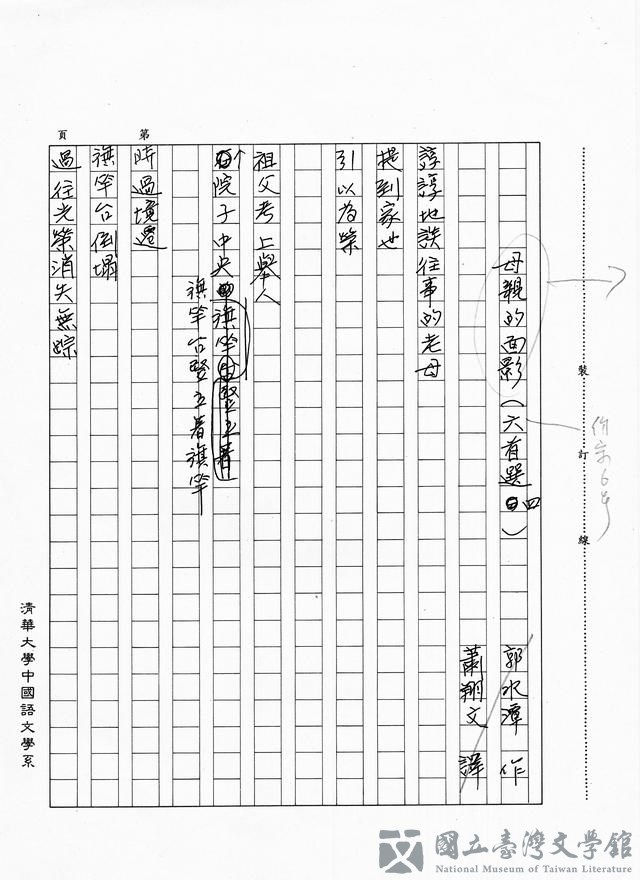 母親的面影（六首選四）
郭水潭 作
蕭翔文 譯
諄諄地談往事的老母
提到家世
引以為榮
祖父考上舉人
院子中央旗竿豎立著
旗竿台豎立著旗竿
時過境遷
旗竿台倒塌
過往光榮消失無踪
第 頁
裝 訂 線
清華大學中國語文學系
國立臺灣文學館
National Museum of Taiwan Literature